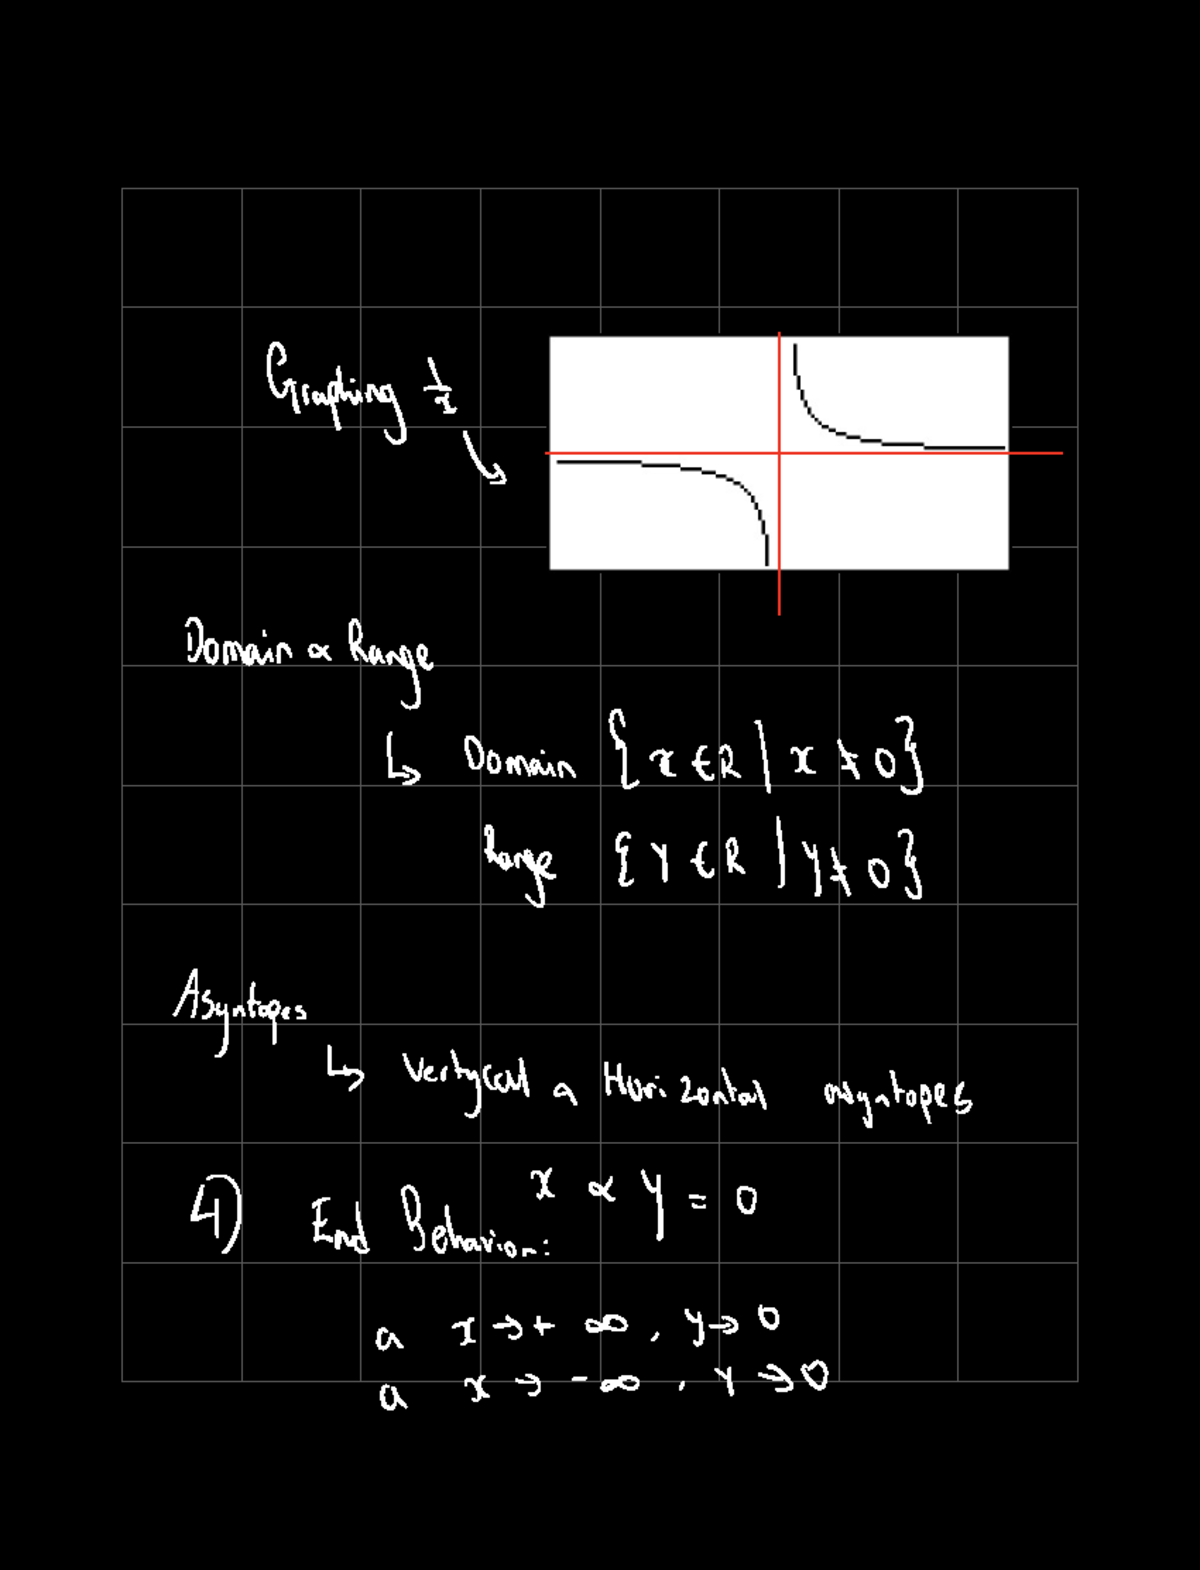 Graphing 1/x
Domain & Range
↳ Domain {x ∈ R | x ≠ 0}
Range {y ∈ R | y ≠ 0}
Asyntopes
↳ Vertycal & Horizontal asyntopes
x & y = 0
4) End Behavior:
a x → + ∞, y → 0
a x → - ∞, y → 0